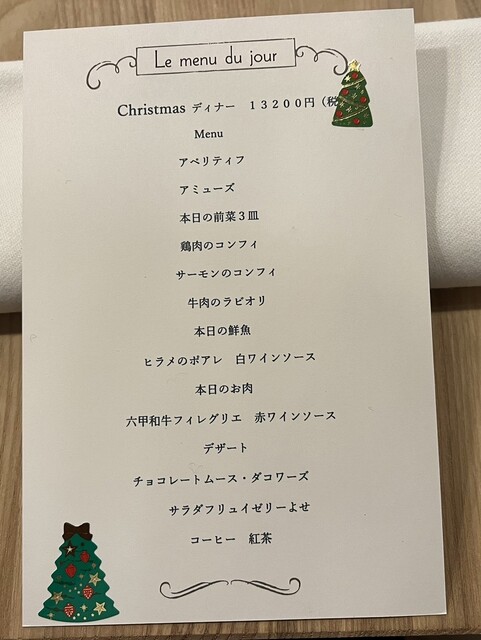 Le menu du jour
Christmas ディナー　１３２００円（税
Menu
アペリティフ
アミューズ
本日の前菜３皿
鶏肉のコンフィ
サーモンのコンフィ
牛肉のラビオリ
本日の鮮魚
ヒラメのポアレ　白ワインソース
本日のお肉
六甲和牛フィレグリエ　赤ワインソース
デザート
チョコレートムース・ダコワーズ
サラダフリュイゼリーよせ
コーヒー　紅茶